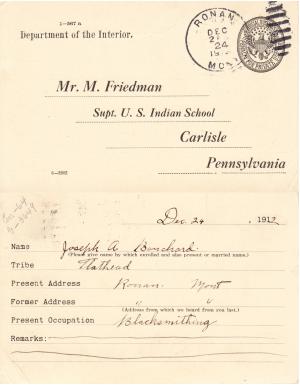 1-567 a
Department of the Interior.
RONAN
DEC
24
MONT
Mr. M. Friedman
Supt. U. S. Indian School
Carlisle
Pennsylvania
Dec. 24, 1912
Name Joseph A. Blanchard.
(Please give name by which enrolled and also present or married name.)
Tribe Flathead
Present Address Ronan. Mont
Former Address " "
(Address from which we heard from you last.)
Present Occupation Blacksmithing
Remarks: